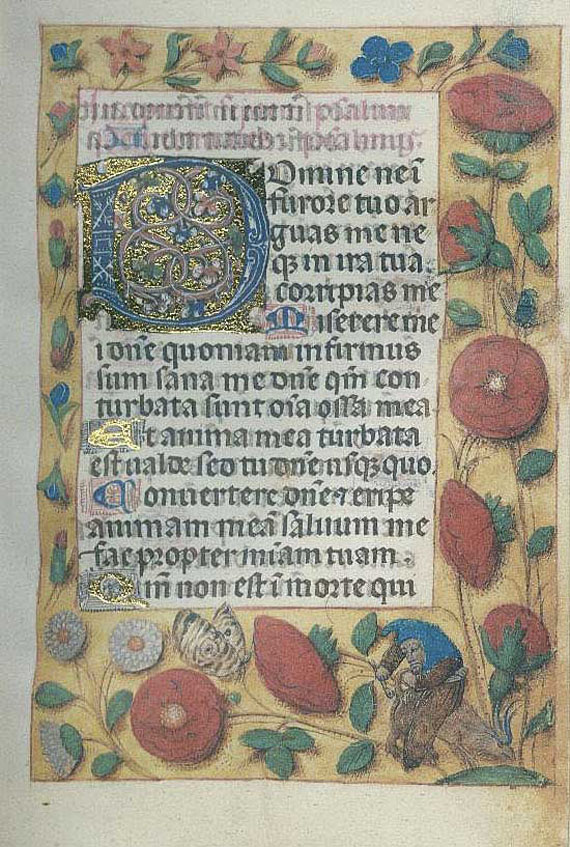 Domine ne i
furore tuo ar
guas me ne
q in ira tua
corripias me
Miserere me
i dñe quoniam infirmus
sum sana me dñe qm̄ con
turbata sunt oīa ossa mea
Et anima mea turbata
est ualde sed tu dñe usq quo.
Conuertere dñe ⁊ eripe
animam meā saluum me
fac propter miām tuam.
Qm̄ non est ī morte qui